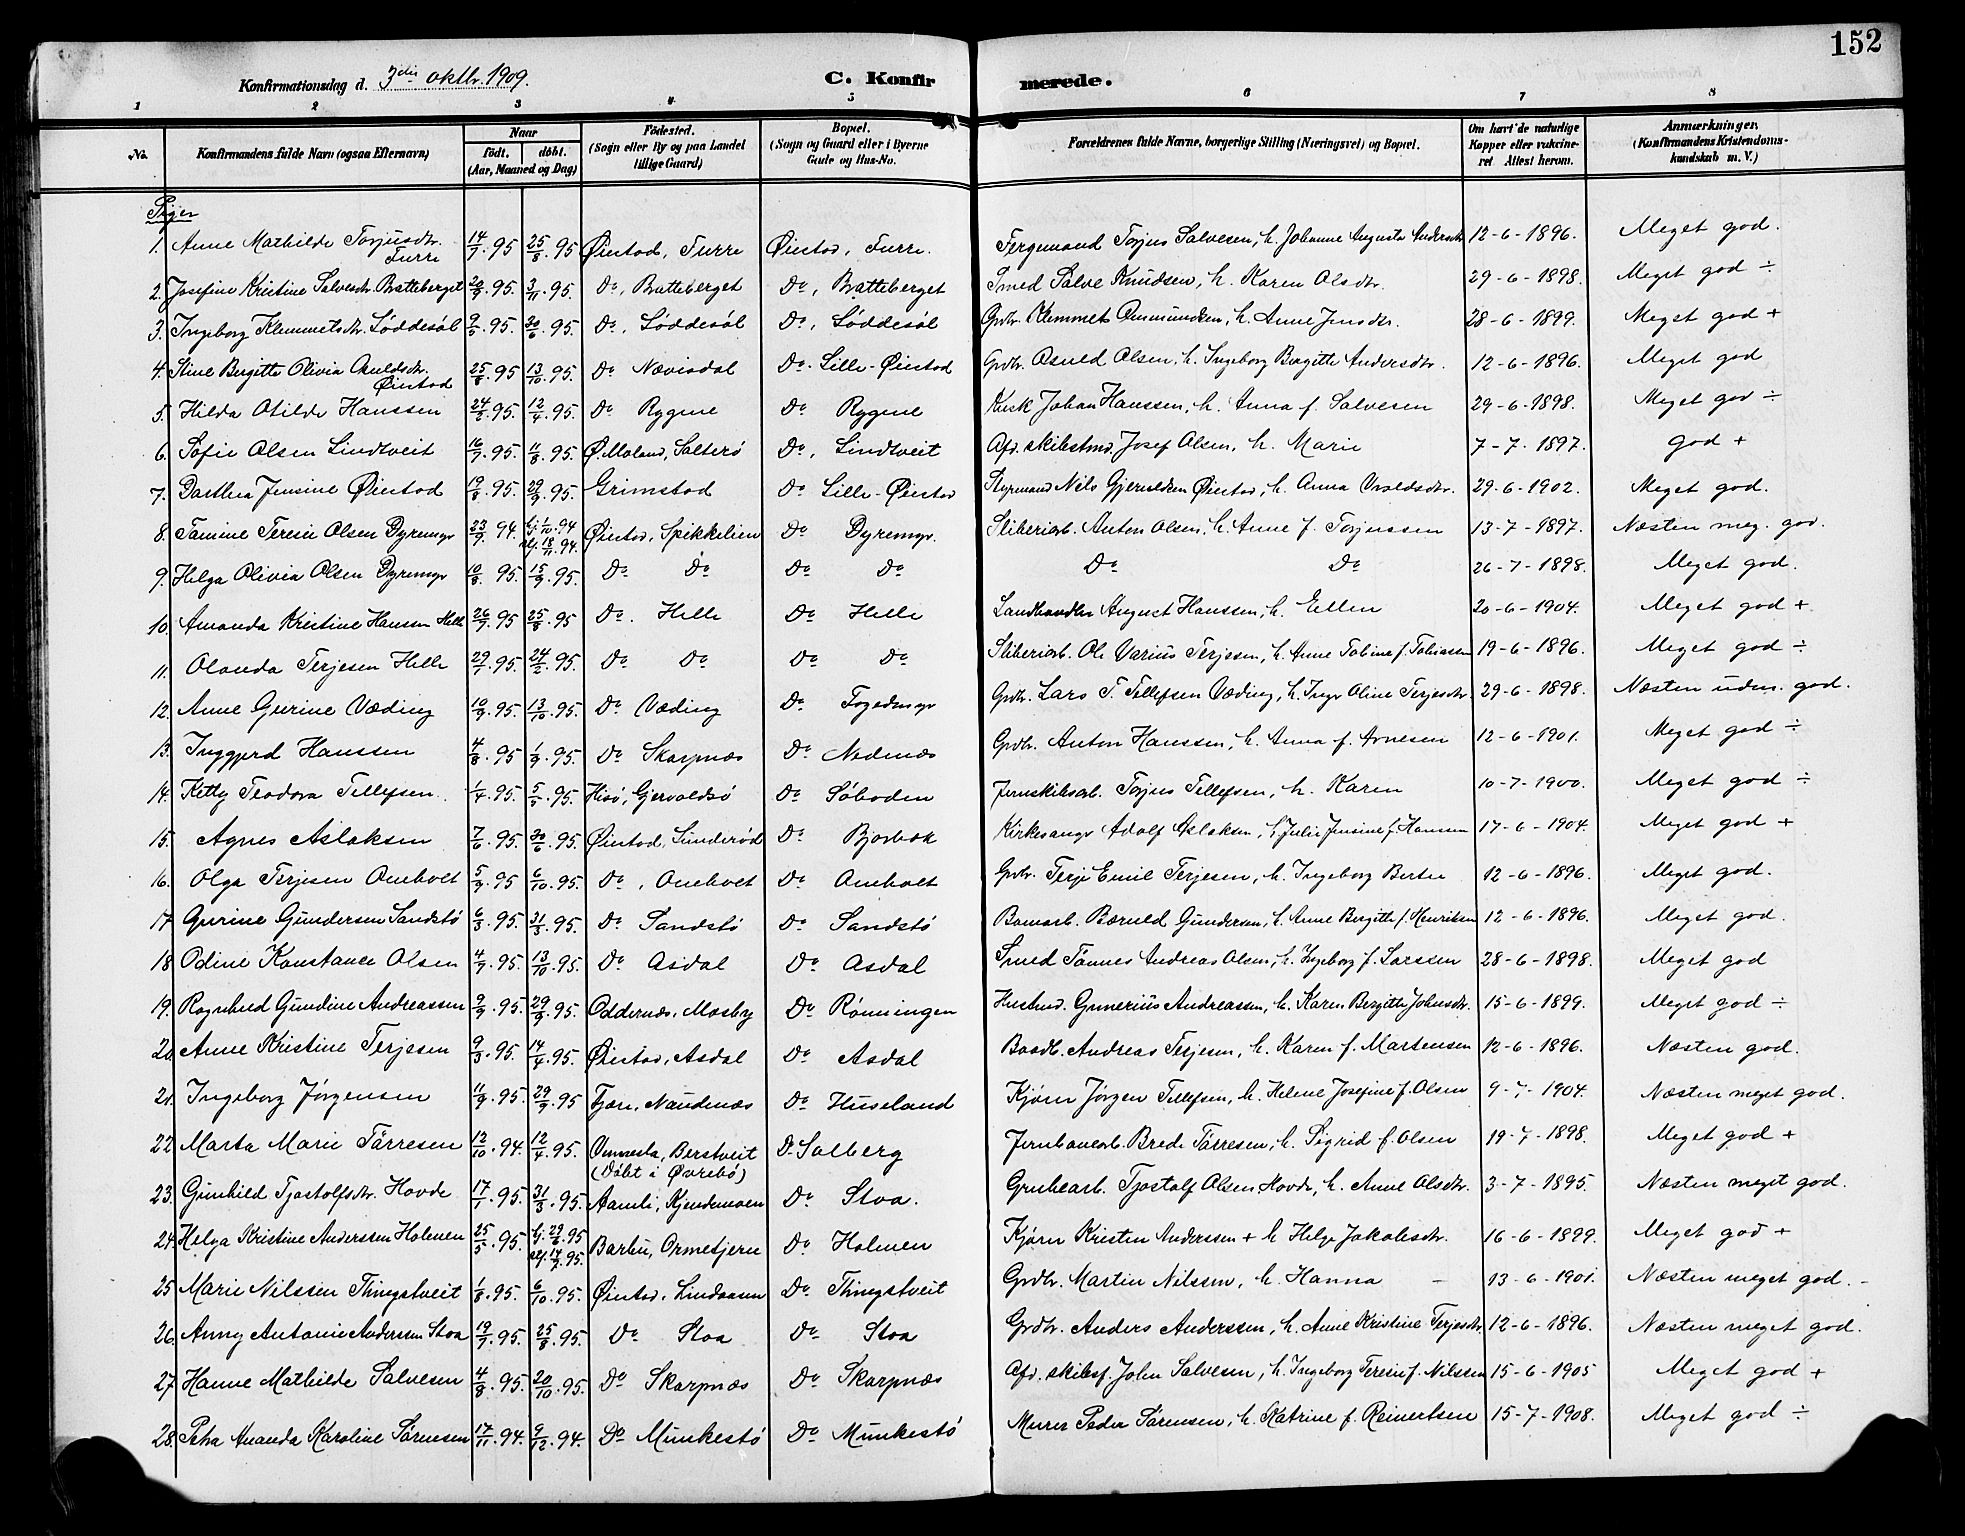 152
Konfirmationsdag d. 3die oktbr. 1909.
C. Konfirmerede.
1 2 3 4 5 6 7 8
No. | Konfirmandens fulde Navn (ogsaa Efternavn) | Naar födt. döbt. (Aar, Maaned og Dag) | Födested. (Sogn eller By og paa Landet tillige Gaard) | Bopæl. (Sogn og Gaard eller i Byerne Gade og Hus-No. | Forældrenes fulde Navne, borgerlige Stilling (Næringsvei) og Bopæl. | Om havt de naturlige Kopper eller vaccineret Attest herom. | Anmærkninger, (Konfirmandens Kristendomskundskab m. V.)
Piger
1. Anne Mathilde Torjusdtr. Furre | 14/7.95 | 25/8.95 | Øiestad, Furre | Øiestad, Furre. | Fergemand Torjus Salvesen, h. Johanne Augusta Andersdtr | 12-6-1896. | Meget god.
2. Josefine Kristine Salvesdtr. Bratteberget | 20/9.95. | 3/11.95. | Do, Bratteberget | Do, Bratteberget | Smed Salve Knudsen, h. Karen Olsdtr. | 29-6-1898. | Meget god ÷
3. Ingeborg Klemmetsdtr. Løddesøl | 9/5.95. | 30/6.95. | Do, Løddesøl | Do, Løddesøl | Grdbr. Klemmet Omundsen, h. Anne Jensdtr. | 28-6-1899. | Meget god +
4. Stine Birgitte Olivia Osuldsdtr. Øiestad | 25/8.95 | 13/10.95. | Do Nævisdal | Do. Lille-Øiestad | Grdbr. Osuld Olsen, h. Ingeborg Birgitte Andersdtr. | 12-6-1896. | Meget god
5. Hilda Otilde Hanssen | 24/2.95. | 12/4.95. | Do Rygene | Do Rygene | Kusk Johan Hanssen, h. Anna f. Salvesen | 29-6-1898. | Meget god ÷
6. Sofie Olsen Lindtveit | 16/7.95. | 11/8.95. | Ø. Moland, Salterø | Do, Lindtveit | Afd. skibstmd. Josef Olsen, h. Marie | 7-7-1897. | god +
7. Darthea Jensine Øiestad | 19/8.95. | 29/9.95. | Grimstad | Do Lille-Øiestad | Styrmand Nils Gjeruldsen Øiestad, h. Anna Osuldsdtr. | 29-6-1902. | Meget god.
8. Tamine Teresie Olsen Dyremyr | 23/9.94. | hj. 1/10.94 alf. 18/11.94. | Øiestad, Spikkelien | Do Dyremyr. | Sliberiarb. Anton Olsen, h. Anne f. Torjussen | 13-7-1897. | Næsten meg. god.
9. Helga Olivia Olsen Dyremyr | 10/8.95 | 15/9.95. | Do Do | Do Do | Do Do | 26-7-1898. | Meget god.
10. Amanda Kristine Hansen Helle | 26/7.95 | 25/8.95 | Do. Helle | Do Helle | Landhandler August Hanssen, h. Ellen | 20-6-1904. | Meget god +
11. Olanda Terjesen Helle | 29/1.95. | 24/2.95. | Do Do | Do Do | Sliberiarb. Ole Varius Terjesen, h. Anne Tobine f. Tobiassen | 19-6-1896. | Meget god ÷
12. Anne Gurine Væding | 10/9.95. | 13/10.95. | Do Væding | Do Fogedmyr | Grdbr. Lars T. Tellefsen Væding, h. Inger Oline Terjesdtr. | 29-6-1898. | Næsten udm. god.
13. Inggjerd Hanssen | 4/8.95 | 1/9.95. | Do Skarpnæs | Do Nedenæs | Grdbr. Anton Hanssen, h. Anna f. Arnesen | 12-6-1901. | Meget god ÷
14. Ketty Teodora Tellefsen. | 1/4.95. | 5/5.95. | Hisø, Gjervoldsø | Do Søboden | Jernskibsarb. Torjus Tellefsen, h. Karen | 10-7-1900. | Meget god ÷
15. Agnes Aslaksen | 7/6.95. | 30/6.95. | Øiestad, Sunderød | Do Bjorbæk | Kirkesanger Adolf Aslaksen, h. Julie Jensine f. Hansen | 17-6-1904. | Meget god +
16. Olga Terjesen Oueholt | 5/9.95 | 6/10.95. | Do, Oueholt | Do Oueholt | Grdbr. Terje Emil Terjesen, h. Ingeborg Bertea | 12-6-1896. | Meget god.
17. Gurine Gundersen Sandstø | 6/3.95. | 31/3.95. | Do Sandstø | Do Sandstø | Bomarb. Bæruld Gundersen, h. Anne Birgitte f. Henriksen | 12-6-1896. | Meget god.
18 Odine Konstance Olsen | 4/9.95. | 13/10.95. | Do Asdal | Do Asdal | Smed Tønnes Andreas Olsen, h. Ingeborg f. Larssen | 28-6-1898. | Meget god
19. Ragnhild Gundine Andreassen | 9/9.95. | 29/9.95. | Oddernæs, Mosby | Do Rønningen | Husmd. Gunerius Andreassen, h. Karen Birgitte Johnsdtr. | 15-6-1899. | Meget god ÷
20 Anne Kristine Terjesen | 9/3.95. | 14/4.95. | Øiestad, Asdal | Do Asdal | Baadb. Andreas Terjesen, h. Karen f. Martensen | 12-6-1896. | Næsten god.
21. Ingeborg Jørgensen | 11/9.95. | 29/9.95 | Fjære, Naudenæs | Do Huseland | Kjører Jørgen Tellefsen, h. Helene Josefine f. Olsen | 9-7-1904. | Næsten meget god.
22. Marta Marie Tårresen | 12/10.94. | 12/4.95. | Vennesla, Berstveit (Døbt i Øvrebø) | Do Solberg | Jernbanearb. Brede Tårresen, h. Sigrid f. Olsen | 19-7-1898. | Meget god +
23. Gunhild Tjostolfsdtr. Hovde | 17/1.95. | 31/3.95. | Aamli, Kjendemoen | Do Stoa. | Grubearb. Tjostolf Olsen Hovde, h. Anne Olsdtr. | 3-7-1895. | Næsten meget god.
24. Helga Kristine Anderssen Holmen | 25/5.95. | hj. 29/6.95 alf. 14/7.95. | Barbu, Ormetjern | Do Holmen | Kjører Kristen Anderssen + h Helge Jakobsdtr. | 16-6-1899. | Meget god +
25 Marie Nilssen Thingstveit | 1/8.95. | 6/10.95. | Øiestad, Lindaasen | Do Thingstveit | Grdbr. Martin Nilssen, h. Hanna - | 13-6-1901. | Næsten meget god. -
26. Anny Antonie Anderssen Stoa | 19/7.95. | 25/8.95. | Do Stoa | Do Stoa | Grdbr. Anders Anderssen, h. Anne Kristine Terjesdtr. | 12-6-1896. | Næsten meget god.
27. Hanne Mathilde Salvesen | 4/8.95. | 20/10.95. | Do Skarpnæs | Do Skarpnæs | Afd. skibsf. John Salvesen, h. Ingeborg Teresie f. Nilssen | 15-6-1905 | Meget god +
28. Petra Amanda Karoline Sørensen | 17/11.94. | 9/12.94. | Do Munkestø | Do Munkestø | Murer Peder Sørensen, h. Katrine f. Reinertsen | 15-7-1908. | Meget god ÷